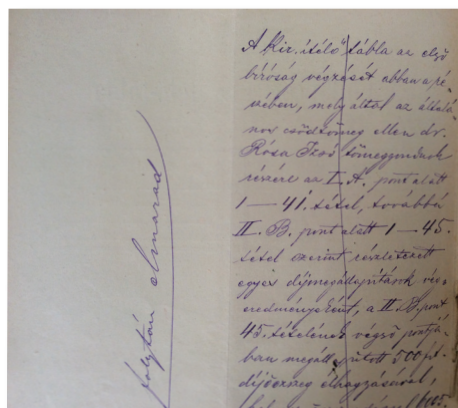 A kir. itélő tábla az első
biróság végzését abban a ré-
szében, mely által az általá-
nos csődtömeg ellen dr.
Rósa Izsó tömeggondnok
részére az I. A. pont alatt
1 — 41. tétel, továbbá
II. B. pont alatt 1 — 45.
tétel szerint részletezett
egyes díjmegállapítások vég-
eredményeként, a II. B. pont
45. tételének végső pontjá-
ban megállapított 500 frt.
díjösszeg elhagyásával,
folytán elmarad